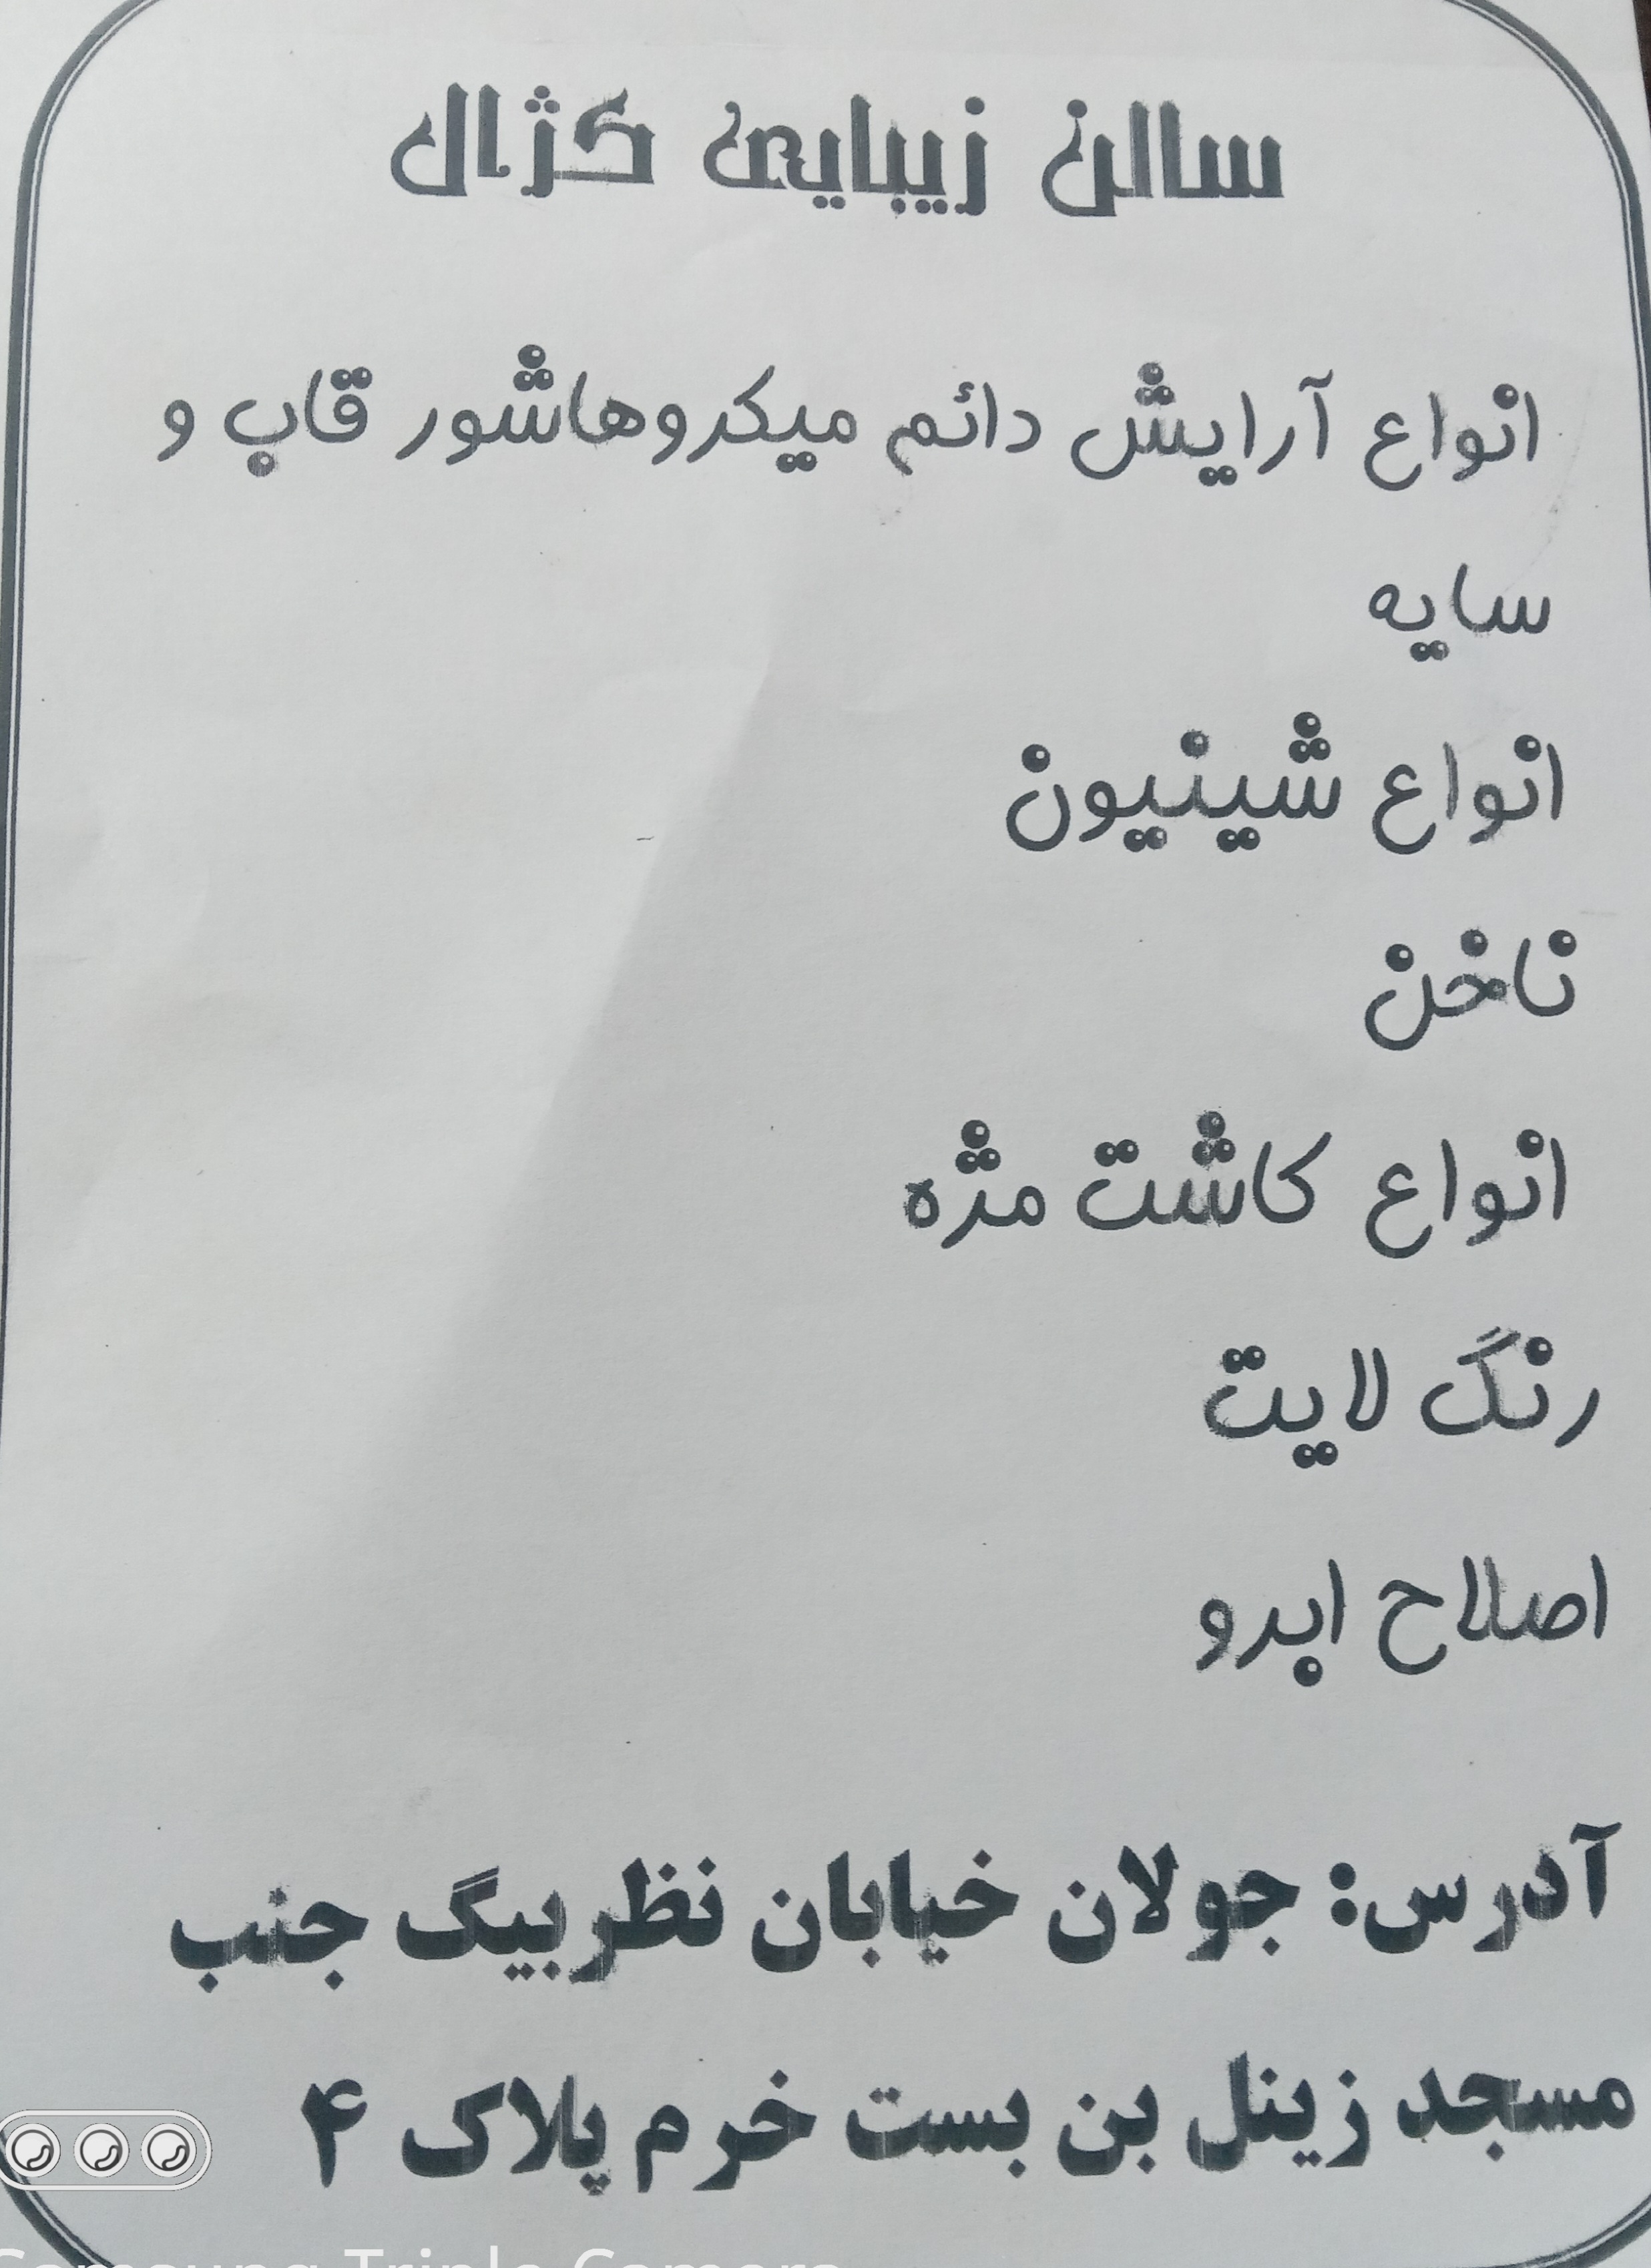 سالن زیبایی کژال
انواع آرایش دائم میکروهاشور قاب و
سایه
انواع شینیون
ناخن
انواع کاشت مژه
رنگ لایت
اصلاح ابرو
آدرس: جولان خیابان نظربیگ جنب
مسجد زینل بن بست خرم پلاک ۴
Samsung Triple Camera